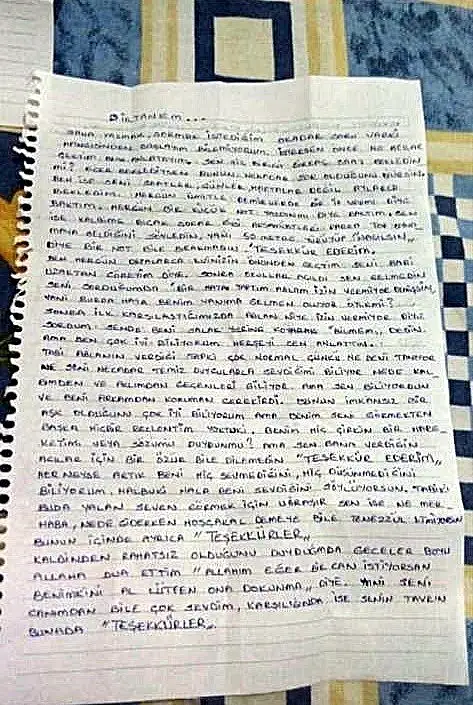 BİLTANEM...
SANA YAZMAK, SORMAK İSTEDİĞİM OKADAR SORU VARKİ
HANGİSİNDEN BAŞLAYIM BİLMİYORUM. İSTERSEN ÖNCE NE ACILAR
ÇEKTİM ONU ANLATAYIM. SEN HİÇ BİRİNİ BİRKAÇ SAAT BEKLEDİN
Mİ? EĞER BEKLEDİYSEN BUNUN NEKADAR ZOR OLDUĞUNU BİLİRSİN.
BEN İSE SENİ SAATLER, GÜNLER, HAFTALAR DEĞİL AYLARCA
BEKLEDİM. HERGÜN ÜMİTLE DEMİRLERDE BİR İZ VARMI DİYE
BAKTIM. HERGÜN BİR KÜÇÜK NOT YAZDINMI DİYE BAKTIM. SEN
İSE KALBİME BIÇAK SOKAR GİBİ ARKADAŞLARLA PARKA TOP OYNA
MAYA GELDİĞİNİ SÖYLEDİN. YANİ 50 METRE YÜRÜYÜP
DİYE BİR NOT BİLE BIRAKMADIN "TEŞEKKÜR EDERİM.
BEN HERGÜN ORTALARCA EVİNİZİN ÖNÜNDEN GEÇTİM SENİ BARİ
UZAKTAN GÖREYİM DİYE. SONRA OKULLAR AÇILDI SEN GELMEDİN
SENİ SORDUĞUMDA "BİR HATA YAPTIM ABLAM İZİN VERMİYOR DEMİŞSİN,
YANİ BURDA HATA BENİM YANIMA GELMEN OLUYOR ÖYLEMİ?
SONRA İLK KARŞILAŞTIĞIMIZDA ABLAN NİYE İZİN VERMİYOR DİYE
SORDUM. SENDE BENİ SALAK YERİNE KOYARAK "BİLMEM,, DEDİN.
AMA BEN ÇOK İYİ BİLİYORUM HERŞEYİ SEN ANLATTIN.
TABİ ABLANIN VERDİĞİ TEPKİ ÇOK NORMAL ÇÜNKÜ NE BENİ TANIYOR
NE SENİ NEKADAR TEMİZ DUYGULARLA SEVDİĞİMİ BİLİYOR NEDE KAL-
BİMDEN VE AKLIMDAN GEÇENLERİ BİLİYOR AMA SEN BİLİYORDUN
VE BENİ ARKAMDAN KORUMAN GEREKİRDİ. BUNUN İMKANSIZ BİR
AŞK OLDUĞUNU ÇOK İYİ BİLİYORUM AMA BENİM SENİ GÖRMEKTEN
BAŞKA HİÇBİR BEKLENTİM YOKTUKİ. BENİM HİÇ ÇİRKİN BİR HARE-
KETİMİ VEYA SÖZÜMÜ DUYDUNMU? AMA SEN BANA VERDİĞİN
ACILAR İÇİN BİR ÖZÜR BİLE DİLEMEDİN "TEŞEKKÜR EDERİM,,
HER NEYSE ARTIK BENİ HİÇ SEVMEDİĞİNİ, HİÇ DÜŞÜNMEDİĞİNİ
BİLİYORUM. HALBUKİ HALA BENİ SEVDİĞİNİ SÖYLÜYORSUN. TABİKİ
BUDA YALAN SEVEN GÖRMEK İÇİN UĞRAŞIR SEN İSE NE MER-
HABA, NEDE GİDERKEN HOŞÇAKAL DEMEYE BİLE TENEZZÜL ETMİYORSUN
BUNUN İÇİNDE AYRICA "TEŞEKKÜRLER,,
KALBİNDEN RAHATSIZ OLDUĞUNU DUYDUĞUMDA GECELER BOYU
ALLAHA DUA ETTİM "ALLAHIM EĞER BİR CAN İSTİYORSAN
BENİMKİNİ AL LÜTFEN ONA DOKUNMA,, DİYE. YANİ SENİ
CANIMDAN BİLE ÇOK SEVDİM, KARŞILIĞINDA İSE SENİN TAVRIN
BUNADA "TEŞEKKÜRLER,,